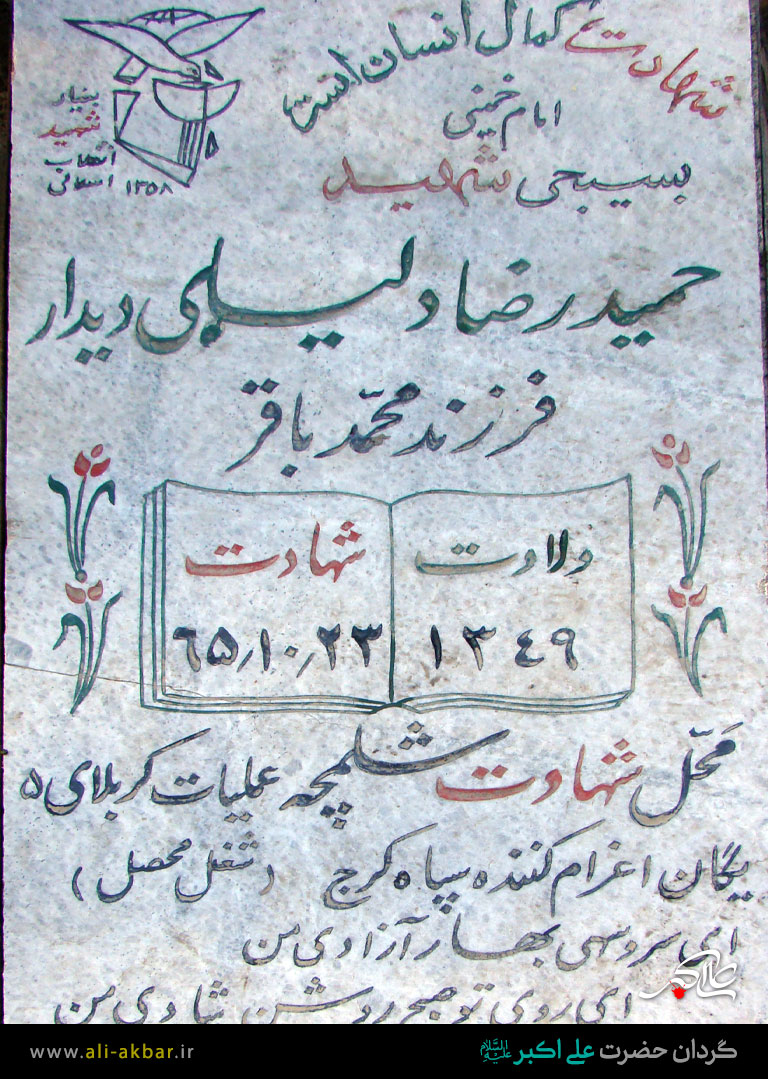 شهادت کمال انسان است
امام خمینی
بنیاد
شهید
انقلاب
اسلامی ۱۳۵۸
بسیجی شهید
حمید رضا دلیلی دیدار
فرزند محمّد باقر
ولادت
۱۳٤۹
شهادت
٦۵٫۱۰٫۲۳
مَحَلّ شهادت شلمچه عملیات کربلای ۵
یگان اعزام کننده سپاه کرج (شغل محصل)
ای سروسهی بهار آزادی من
ای روی تو صبح روشن شادی من
علی اکبر
گردان حضرت علی اکبر علیه‌السلام
www.ali-akbar.ir